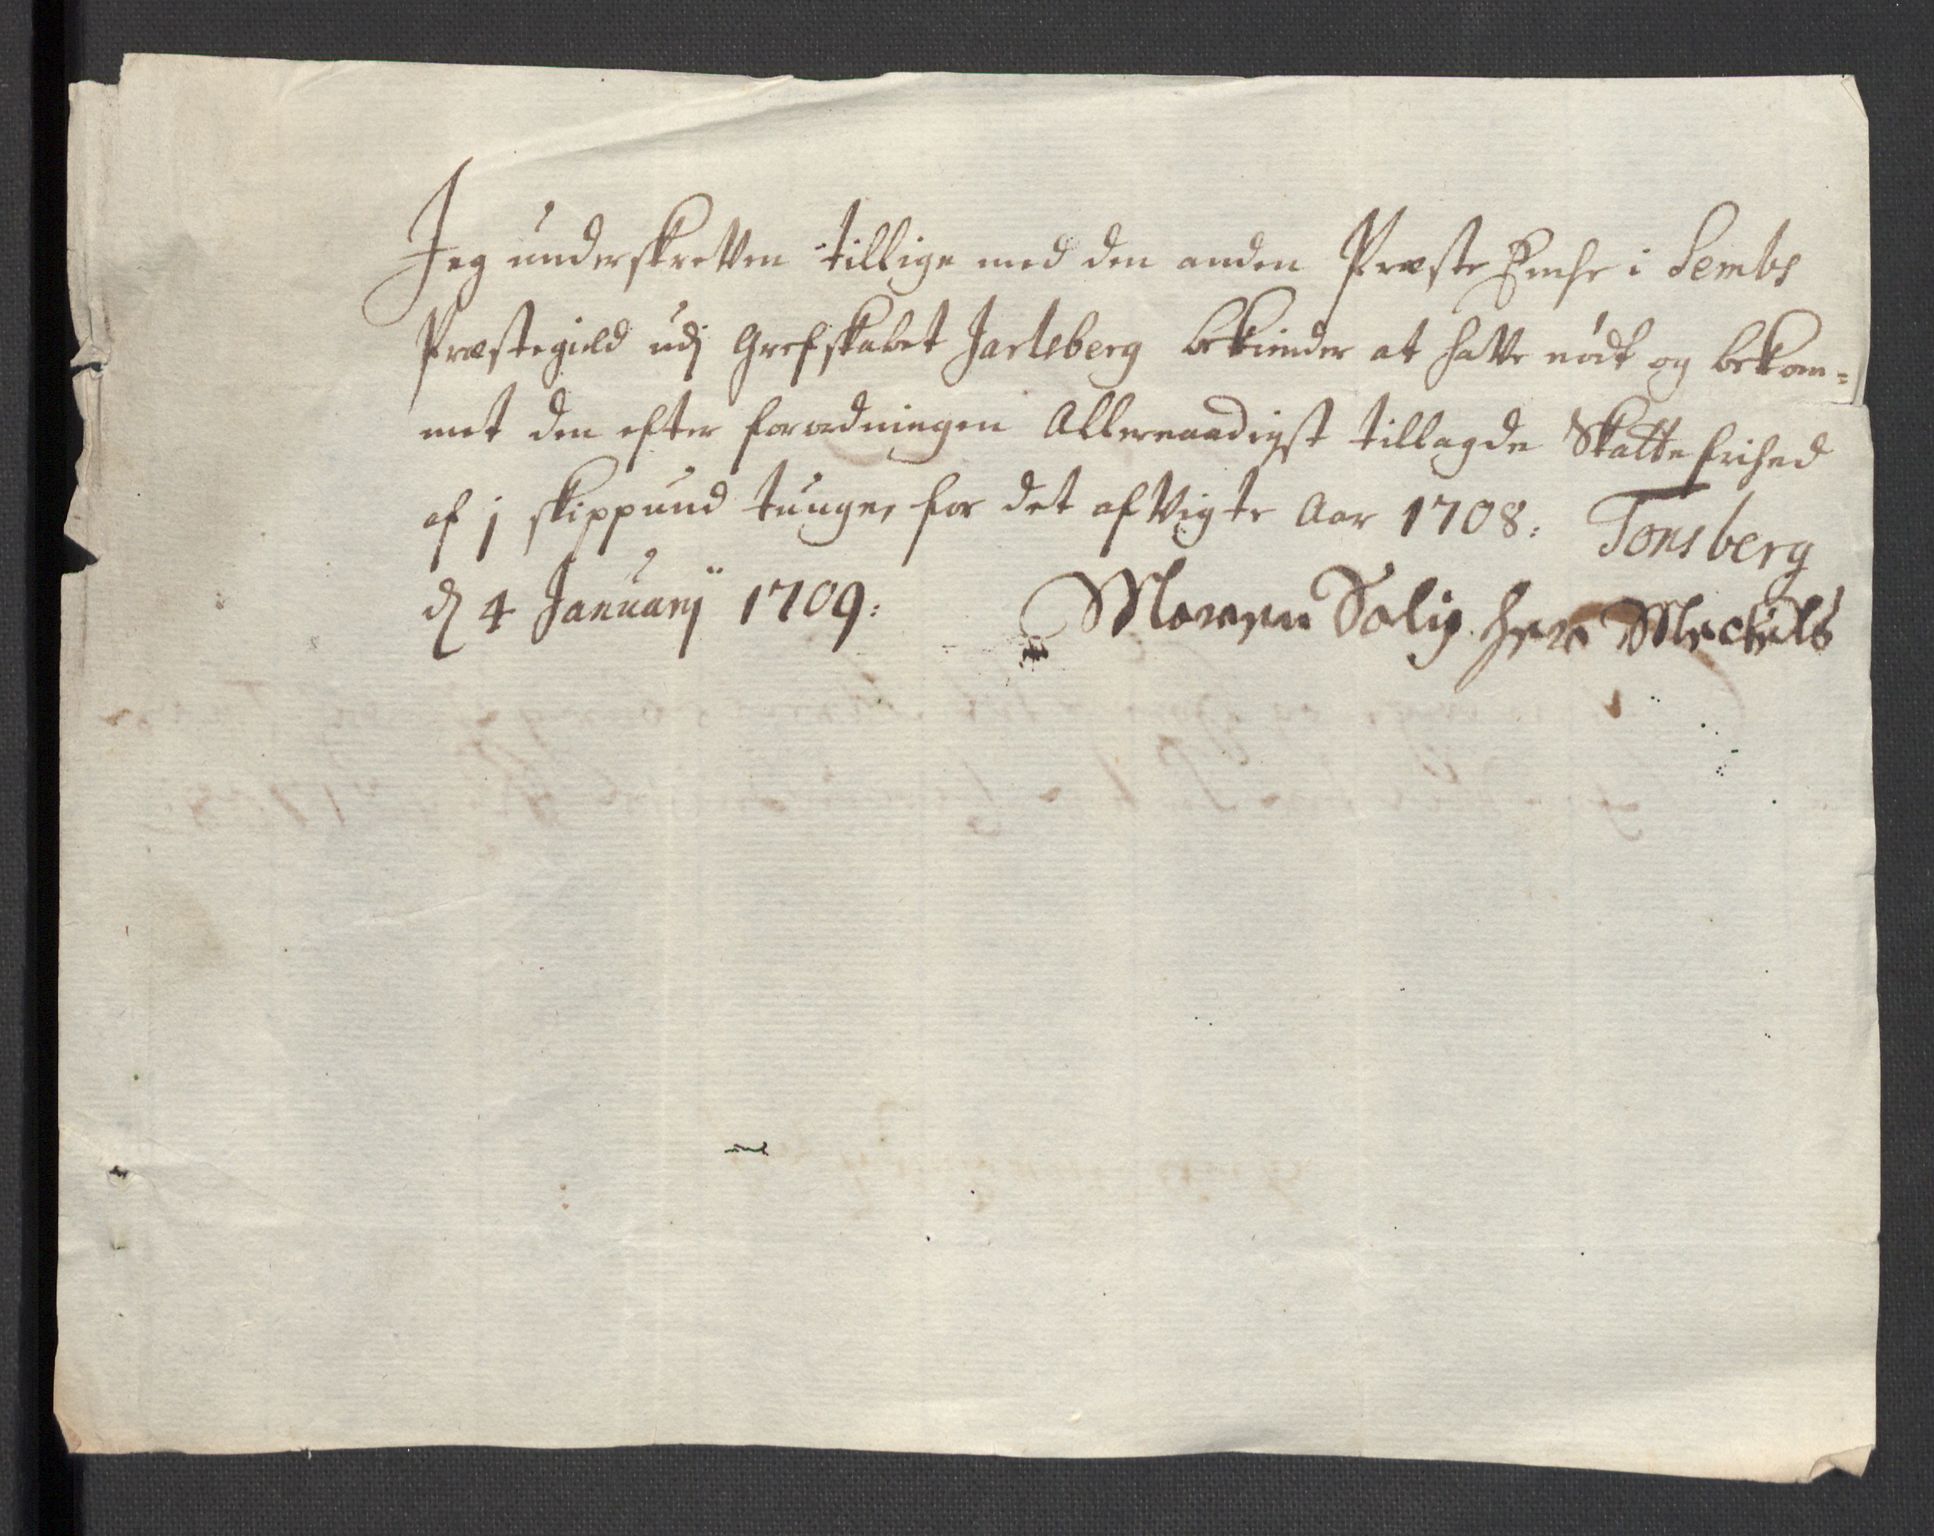 Jeg underskreVen tillige med den anden Præste Enche i Sembs
Præstegield udj Grefskabet Jarlsberg bekiender at haVe nødt og bekom=
met den efter forordningen Allernaadigst tillagde Skatte frihed
af j skippund tunge, for det afVigte Aar 1708: Tonsberg
d 4 Januarij 1709: Maren Salig her Mechels